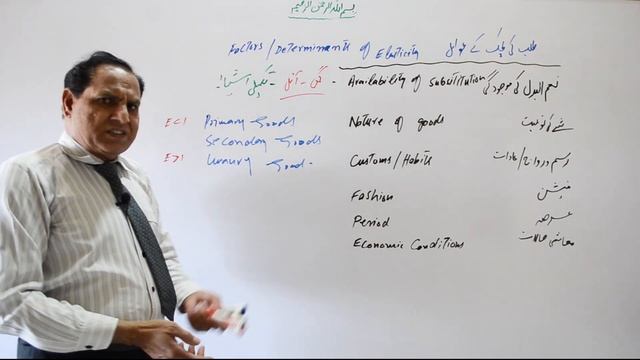 بسم اللہ الرحمن الرحیم
Factors / Determinants of Elasticity طلب کی لچک کے عوامل
Availability of Substitution نعم البدل کی موجودگی
تکمیلی اشیاء
E<1 Primary Goods
Secondary Goods
E>1 Luxury Good
Nature of goods شے کی نوعیت
Customs / Habits رسم و رواج / عادات
Fashion فیشن
Period عرصہ
Economic Conditions معاشی حالات